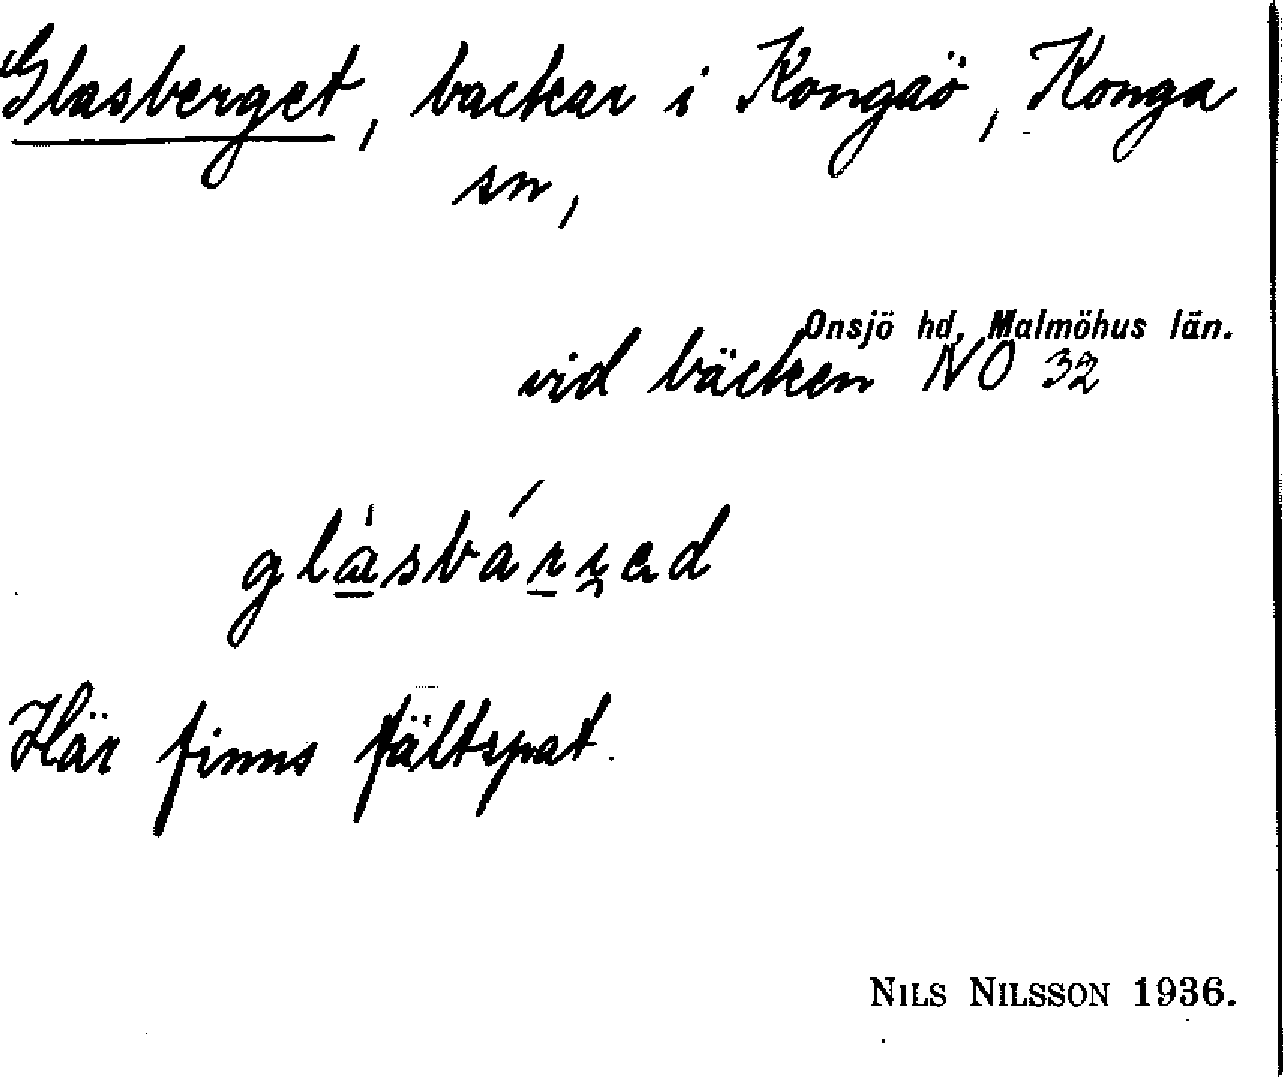 Glasberget, backar i Kongaö, Konga
sn,
Onsjö hd, Malmöhus län.
vid bäcken NO 32
Här finns fältspat.
NILS NILSSON 1936.